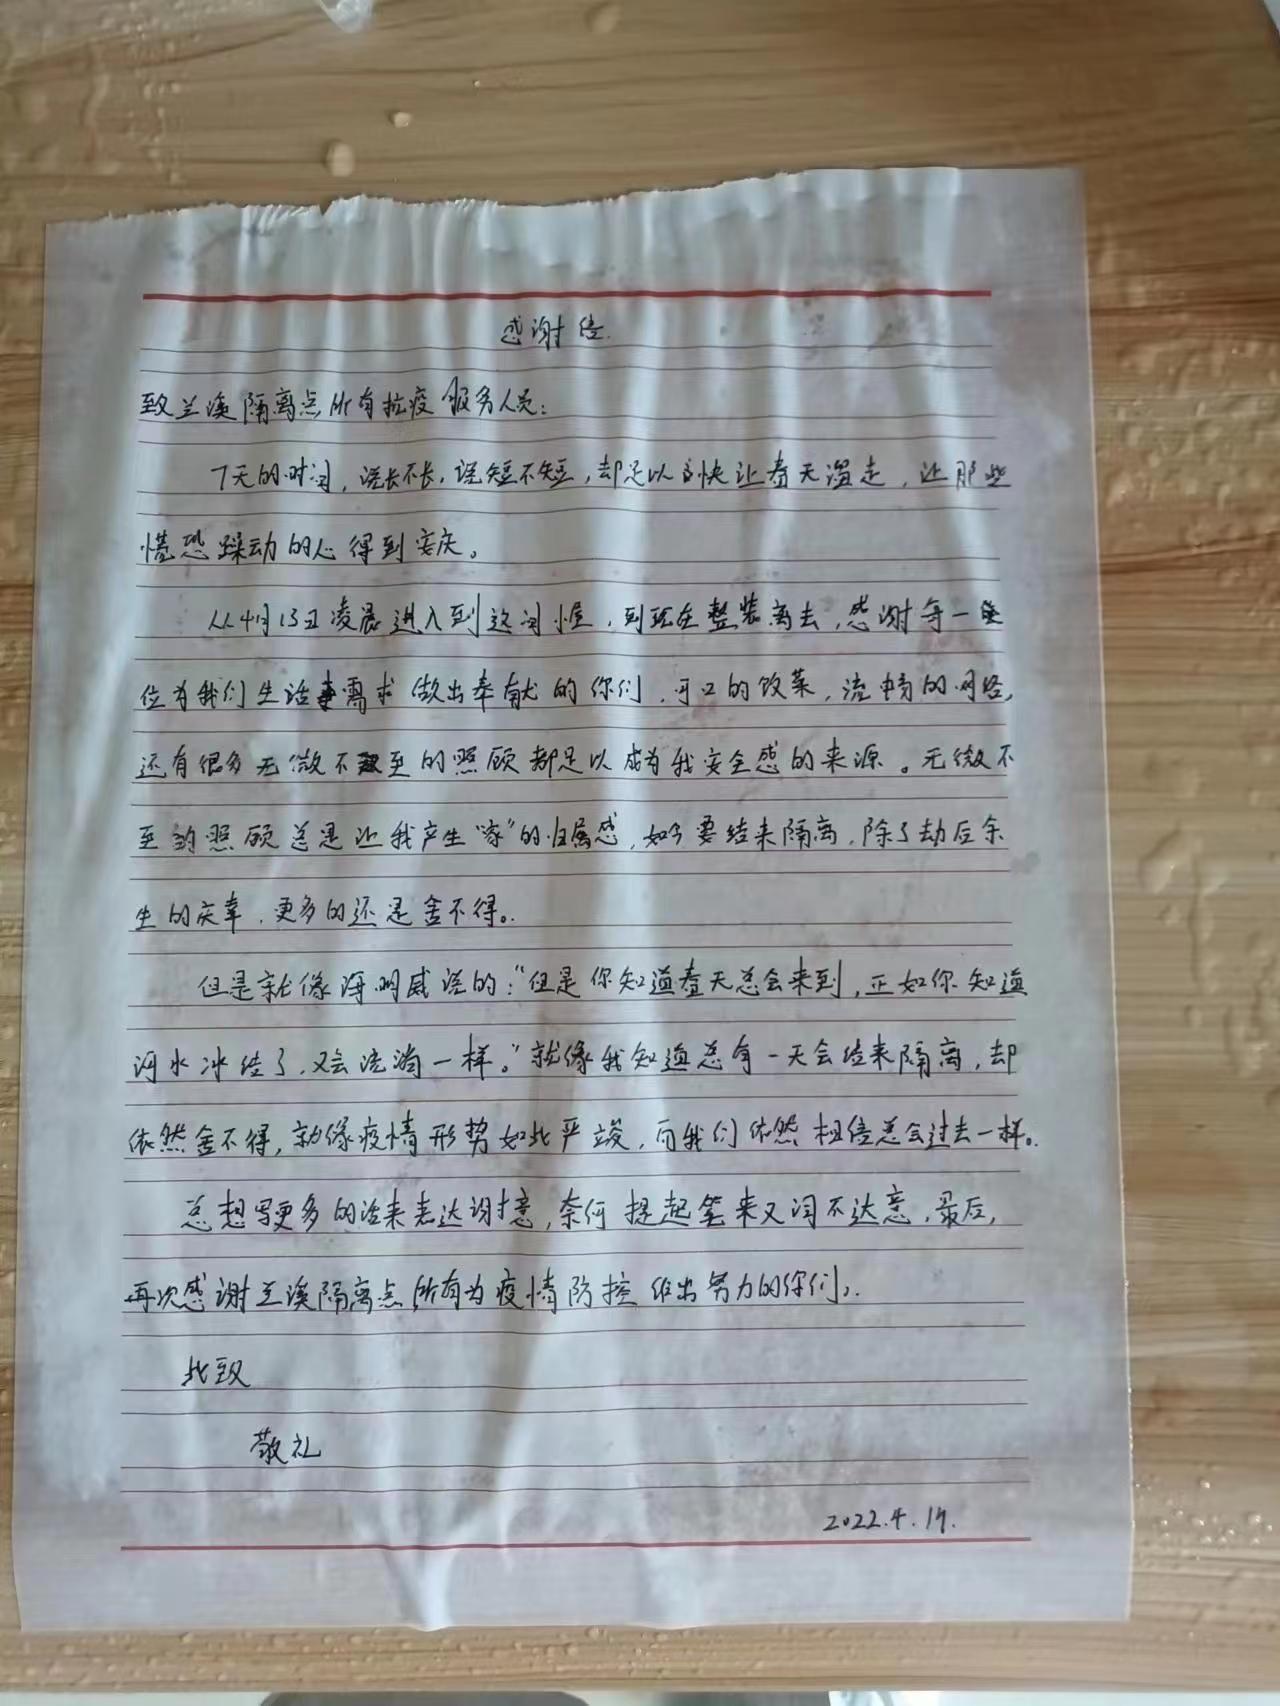 感谢信.
致兰溪隔离点所有抗疫服务人员:
7天的时间,说长不长,说短不短,却足以快让春天溜走,让那些
慌恐躁动的心得到安庆。
从4月13日凌晨进入到这间屋,到现在整装离去,感谢每一
位为我们生活需求做出奉献的你们,可口的饭菜,流畅的网络,
还有很多无微不至的照顾都足以成为我安全感的来源。无微不
至的照顾总是让我产生“家”的归属感,如今要结束隔离,除了劫后余
生的庆幸,更多的还是舍不得。
但是就像海明威说的:“但是你知道春天总会来到,正如你知道
河水冰结了,又会流淌一样。”就像我知道总有一天会结束隔离,却
依然舍不得,就像疫情形势如此严峻,而我们依然相信总会过去一样。
总想写更多的话来表达谢意,奈何提起笔来又词不达意,最后,
再次感谢兰溪隔离点所有为疫情防控作出努力的你们。
此致
敬礼
2022.4.19.